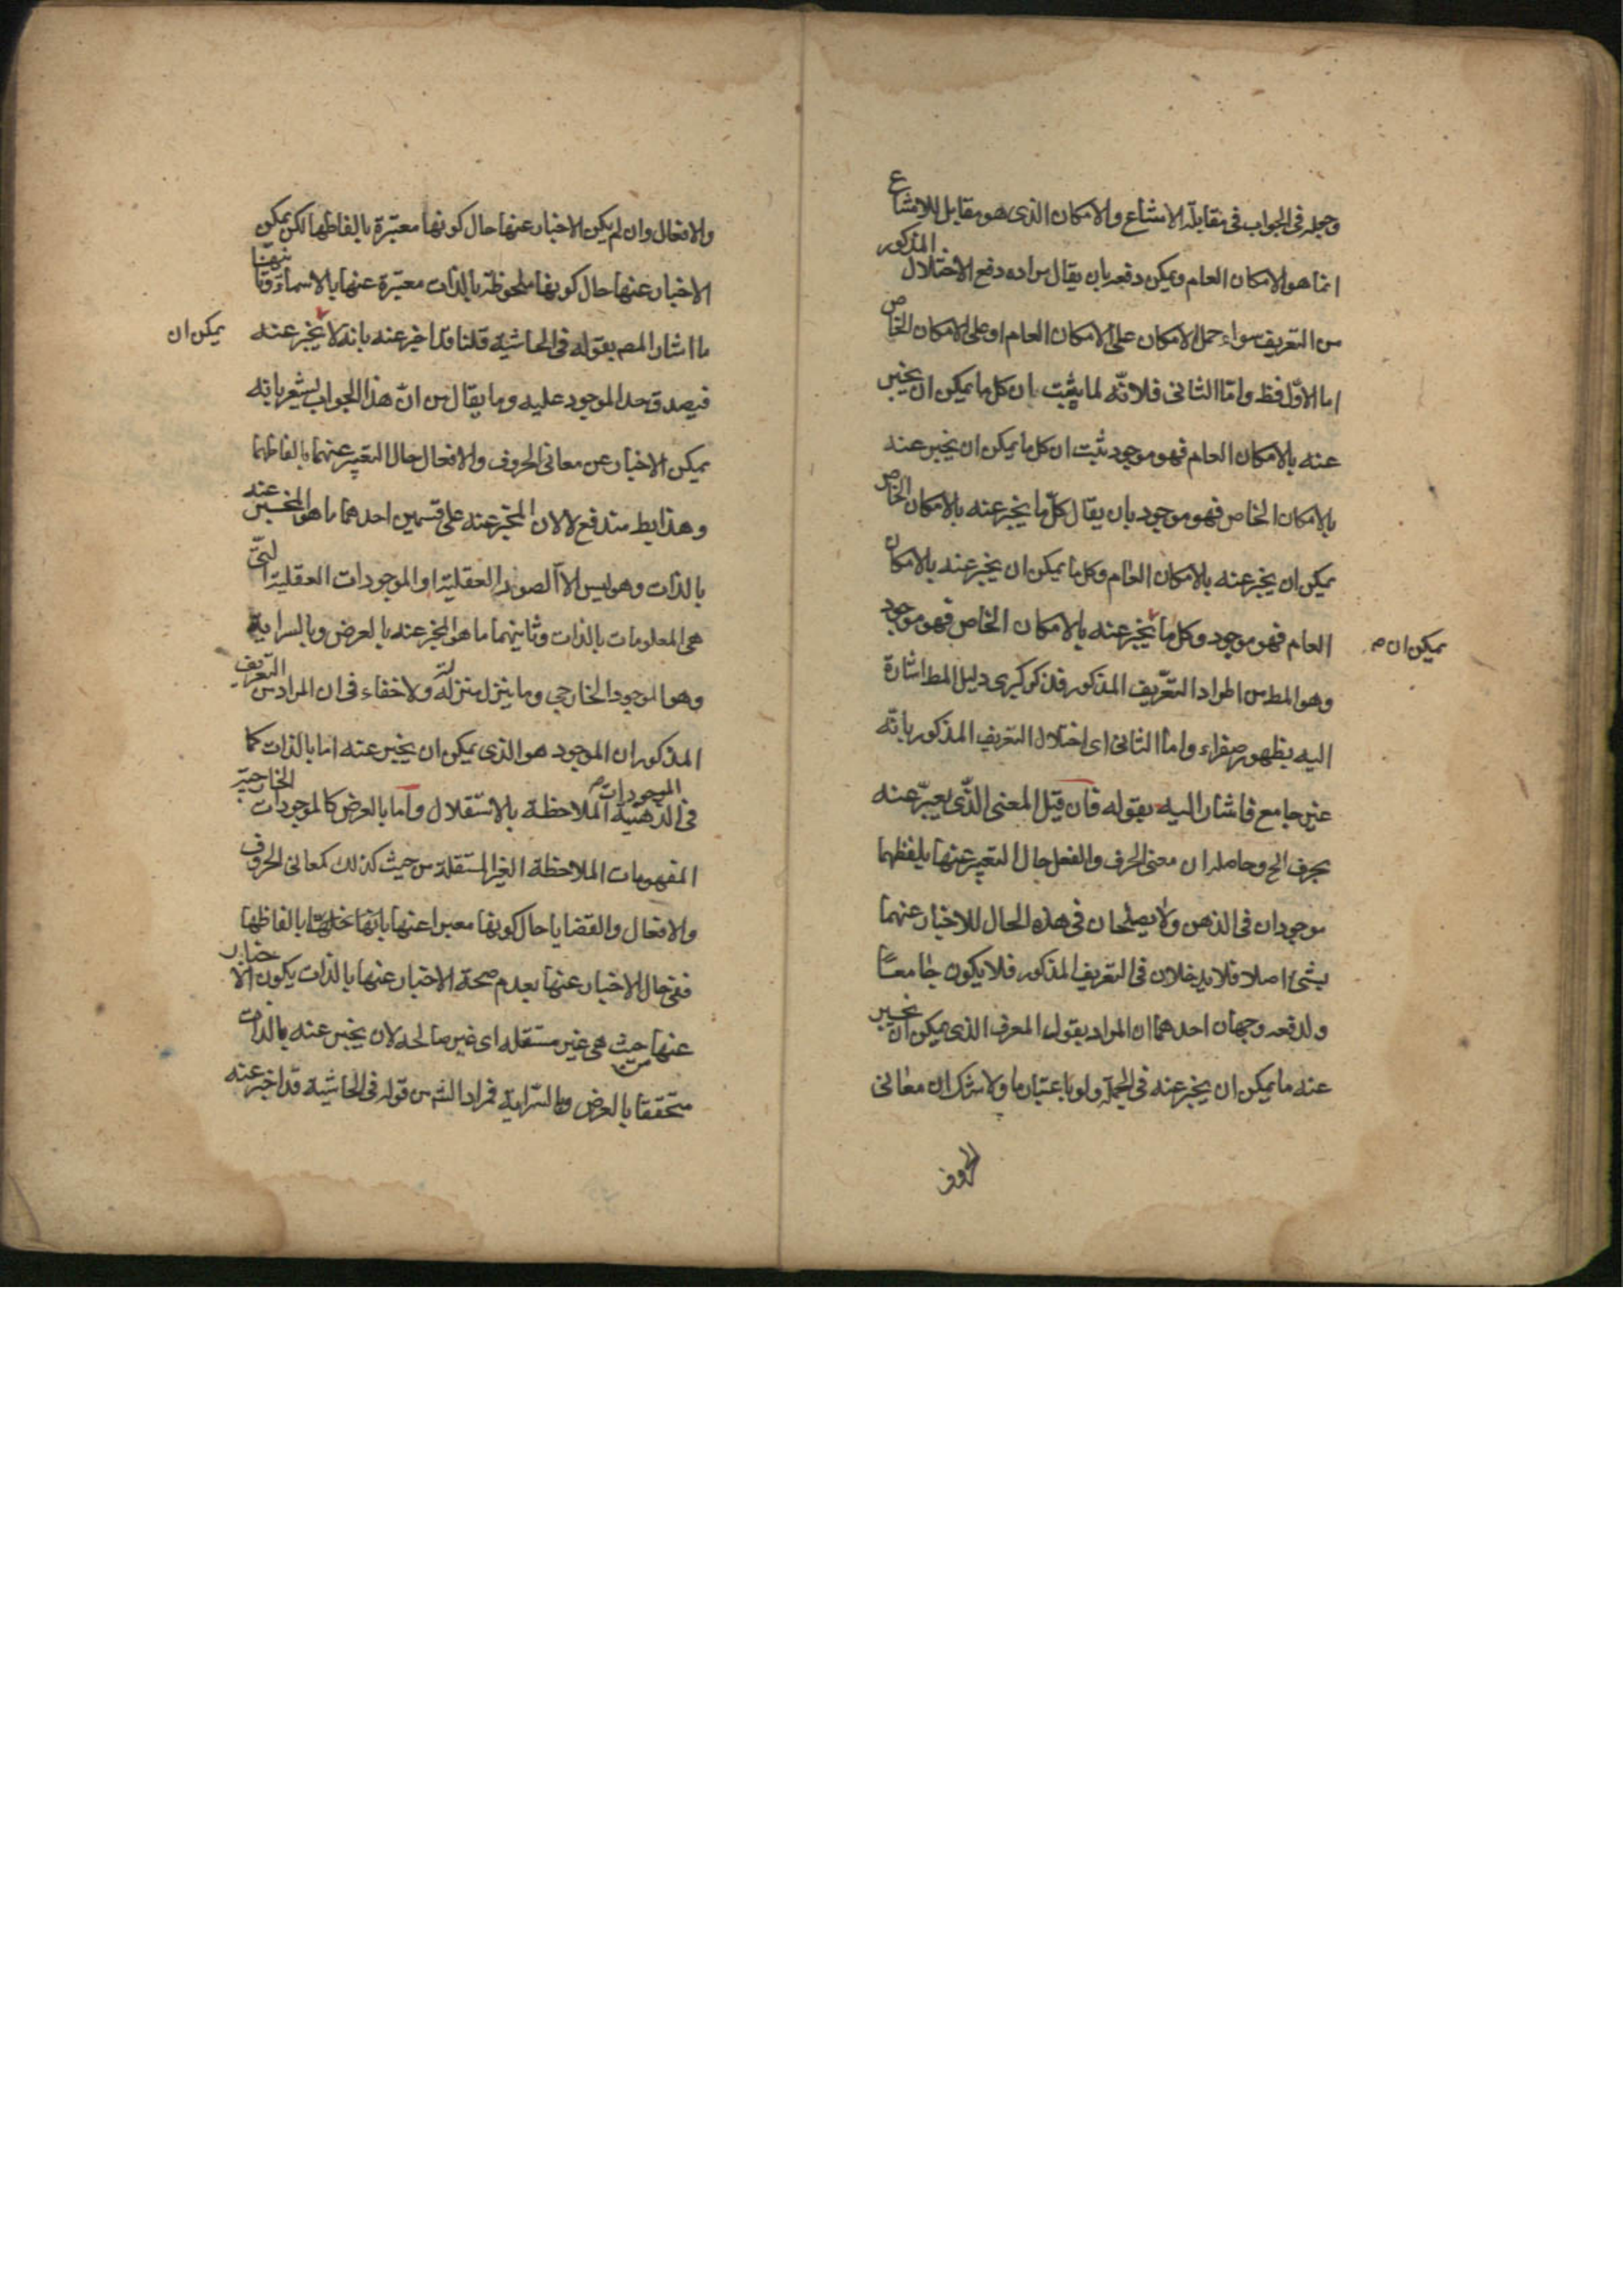 وجعله في الجواب في مقابلة الامتناع والامكان الذي هو مقابل للامتناع
انما هو الامكان العام ويمكن دفعه بان يقال مراده دفع الاختلال المذكور
من التعريف سواء حمل الامكان على الامكان العام او على الامكان الخاص
اما الاول فظ واما الثاني فلانه لما يثبت بان كل ما يمكن ان يخبر
عنه بالامكان العام فهو موجود ثبت ان كل ما يمكن ان يخبر عنه
بالامكان الخاص فهو موجود بان يقال كل ما يخبر عنه بالامكان الخاص
يمكن ان يخبر عنه بالامكان العام وكل ما يمكن ان يخبر عنه بالامكان
العام فهو موجود وكل ما يخبر عنه بالامكان الخاص فهو موجود
يمكن ان ص
وهو المط من اطراد التعريف المذكور فذكر كبرى دليل المط اشارة
اليه بظهور صغراه واما الثاني اى اختلال التعريف المذكور بانه
غير جامع فاشار اليه بقوله فان قيل المعنى الذي يعبر عنه
بحرف الخ وحاصله ان معنى الحرف والفعل حال التعبير عنها بلفظهما
موجودان في الذهن ولا يصلحان في هذه الحال للاخبار عنهما
بشئ اصلا فلا يدخلان في التعريف المذكور فلا يكون جامعا
ولدفعه وجهان احدهما ان المراد بقول المعرف الذي يمكن ان يخبر
عنه ما يمكن ان يخبر عنه في الجملة ولو باعتبار ما ولا شك ان معانى
الحروف
والافعال وان لم يكن الاخبار عنها حال كونها معتبرة بالفاظها لكن يمكن
الاخبار عنها حال كونها ملحوظة بالذات معتبرة عنها بالاسماء
ما اشار المصـ بقوله في الحاشية قلنا قد اخبر عنه بانه لا يخبر عنه
يمكن ان
فيصدق حد الموجود عليه وما يقال من ان هذا الجواب يشعر بانه
يمكن الاخبار عن معانى الحروف والافعال حال التعبير عنهما بالفاظهما
وهذا بط مندفع لان المخبر عنه على قسمين احدهما ما هو المخبر عنه
بالذات وهو ليس الا الصور العقلية او الموجودات العقلية التي
هي المعلومات بالذات وثانيهما ما هو المخبر عنه بالعرض وبالسراية
وهو الموجود الخارجي وما ينزل منزلته ولا خفاء في ان المراد من التعريف
المذكور ان الموجود هو الذي يمكن ان يخبر عنه اما بالذات كما
في الموجودات الذهنية الملاحظة بالاستقلال واما بالعرض كالموجودات الخارجية
المفهومات الملاحظة الغير المستقلة من حيث كذلك كمعانى الحروف
والافعال والقضايا حال كونها معبرا عنها بالفاظها
ففي حال الاخبار عنها بعدم صحة الاخبار عنها بالذات يكون الاخبار
عنها من حيث هي غير مستقله اى غير صالحه لان يخبر عنه بالذات
متحققا بالعرض وبالسراية فمراد الشـ من قوله في الحاشية قد اخبر عنه